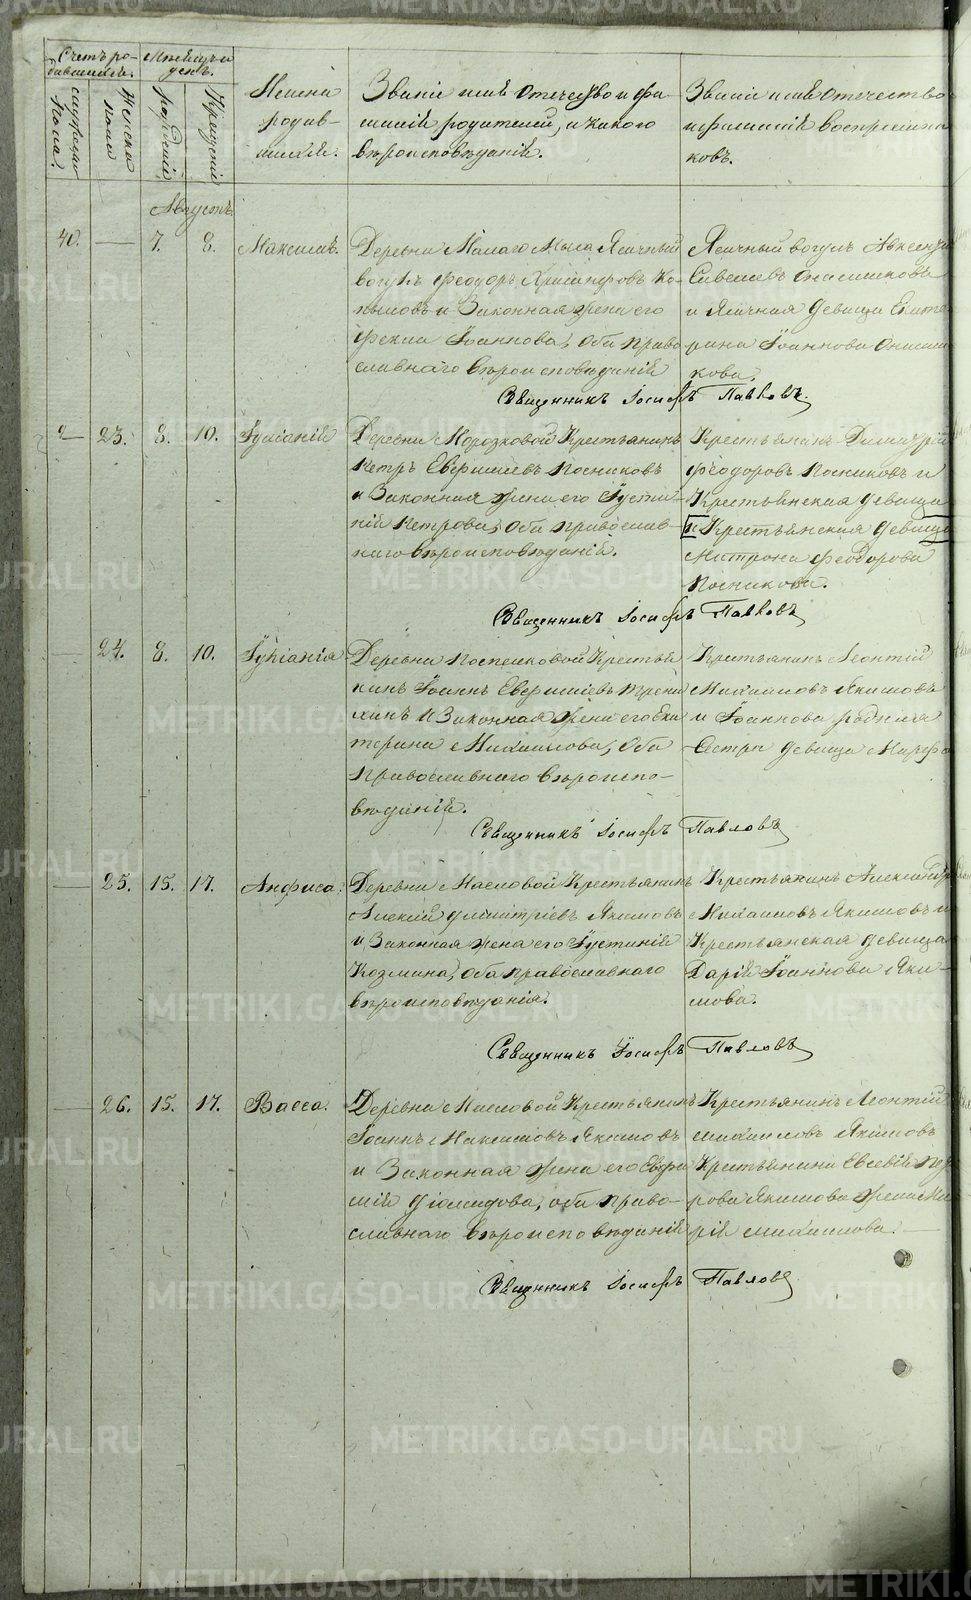 Счетъ ро-
дившихся.
Мѣсяцъ и
день.
Мужеска
пола.
Женска
пола
рожденія
Крещенія
Имена
родив-
шихся.
Званіе имя отечество и фа-
милія родителей, и какого
вѣроисповѣданія.
Званіе имя отечество
и фамилія воспріемни
ковъ.
Августъ
40. — 7. 8. Максимъ.
Деревни Малаго Мыса Ясачный
вогулъ Феодоръ Христофоровъ Ко-
пыловъ и Законная жена его
Фекла Іоаннова, Оба право
славнаго вѣроисповѣданія
Ясачный вогулъ Авксентій
Савельевъ Онисимковъ
и Ясачная девица Екате
рина Іоаннова Онисим
кова.
Священникъ Іосифъ Павловъ.
23. 8. 10. Іуліанія
Деревни Морозковой Крестьянинъ
Петръ Евфимьевъ Посниковъ
и Законная жена его Іусти-
нія Петрова, Оба православ-
наго вѣроисповѣданія.
Крестьянинъ Димитрій
Феодоровъ Посниковъ и
Крестьянская девица
и Крестьянская девица
Матрона Феодорова
Посникова.
Священникъ Іосифъ Павловъ
— 24. 8. 10. Іуліанія
Деревни Постниковой Крестья
нинъ Іоаннъ Евфимьевъ
и Законная жена его Ека
терина Михаилова, Оба
Православнаго вѣроиспо-
вѣданія.
Крестьянинъ Леонтій
Михаиловъ Якимовъ
и Іоаннова родная
Сестра девица Марфа
Священникъ Іосифъ Павловъ
— 25. 15. 17. Анфиса.
Деревни Масловой Крестьянинъ
Алексій Димитріевъ Якимовъ
и Законная жена его Іустинія
Козмина, Оба православнаго
вѣроисповѣданія.
Крестьянинъ Александръ
Михаиловъ Якимовъ и
Крестьянская девица
Дарія Іоаннова Яки-
мова.
Священникъ Іосифъ Павловъ
— 26. 15. 17. Васса.
Деревни Масловой Крестьянинъ
Іоаннъ Максимовъ Якимовъ
и Законная жена его Евфи
мія Діомидова, оба право-
славнаго вѣроисповѣданія
Крестьянинъ Леонтій
Михаиловъ Якимовъ
Крестьянина Евсевія Пет
рова Якимова жена Ма
рія Михаилова.
Священникъ Іосифъ Павловъ
METRIKI.GASO-URAL.RU